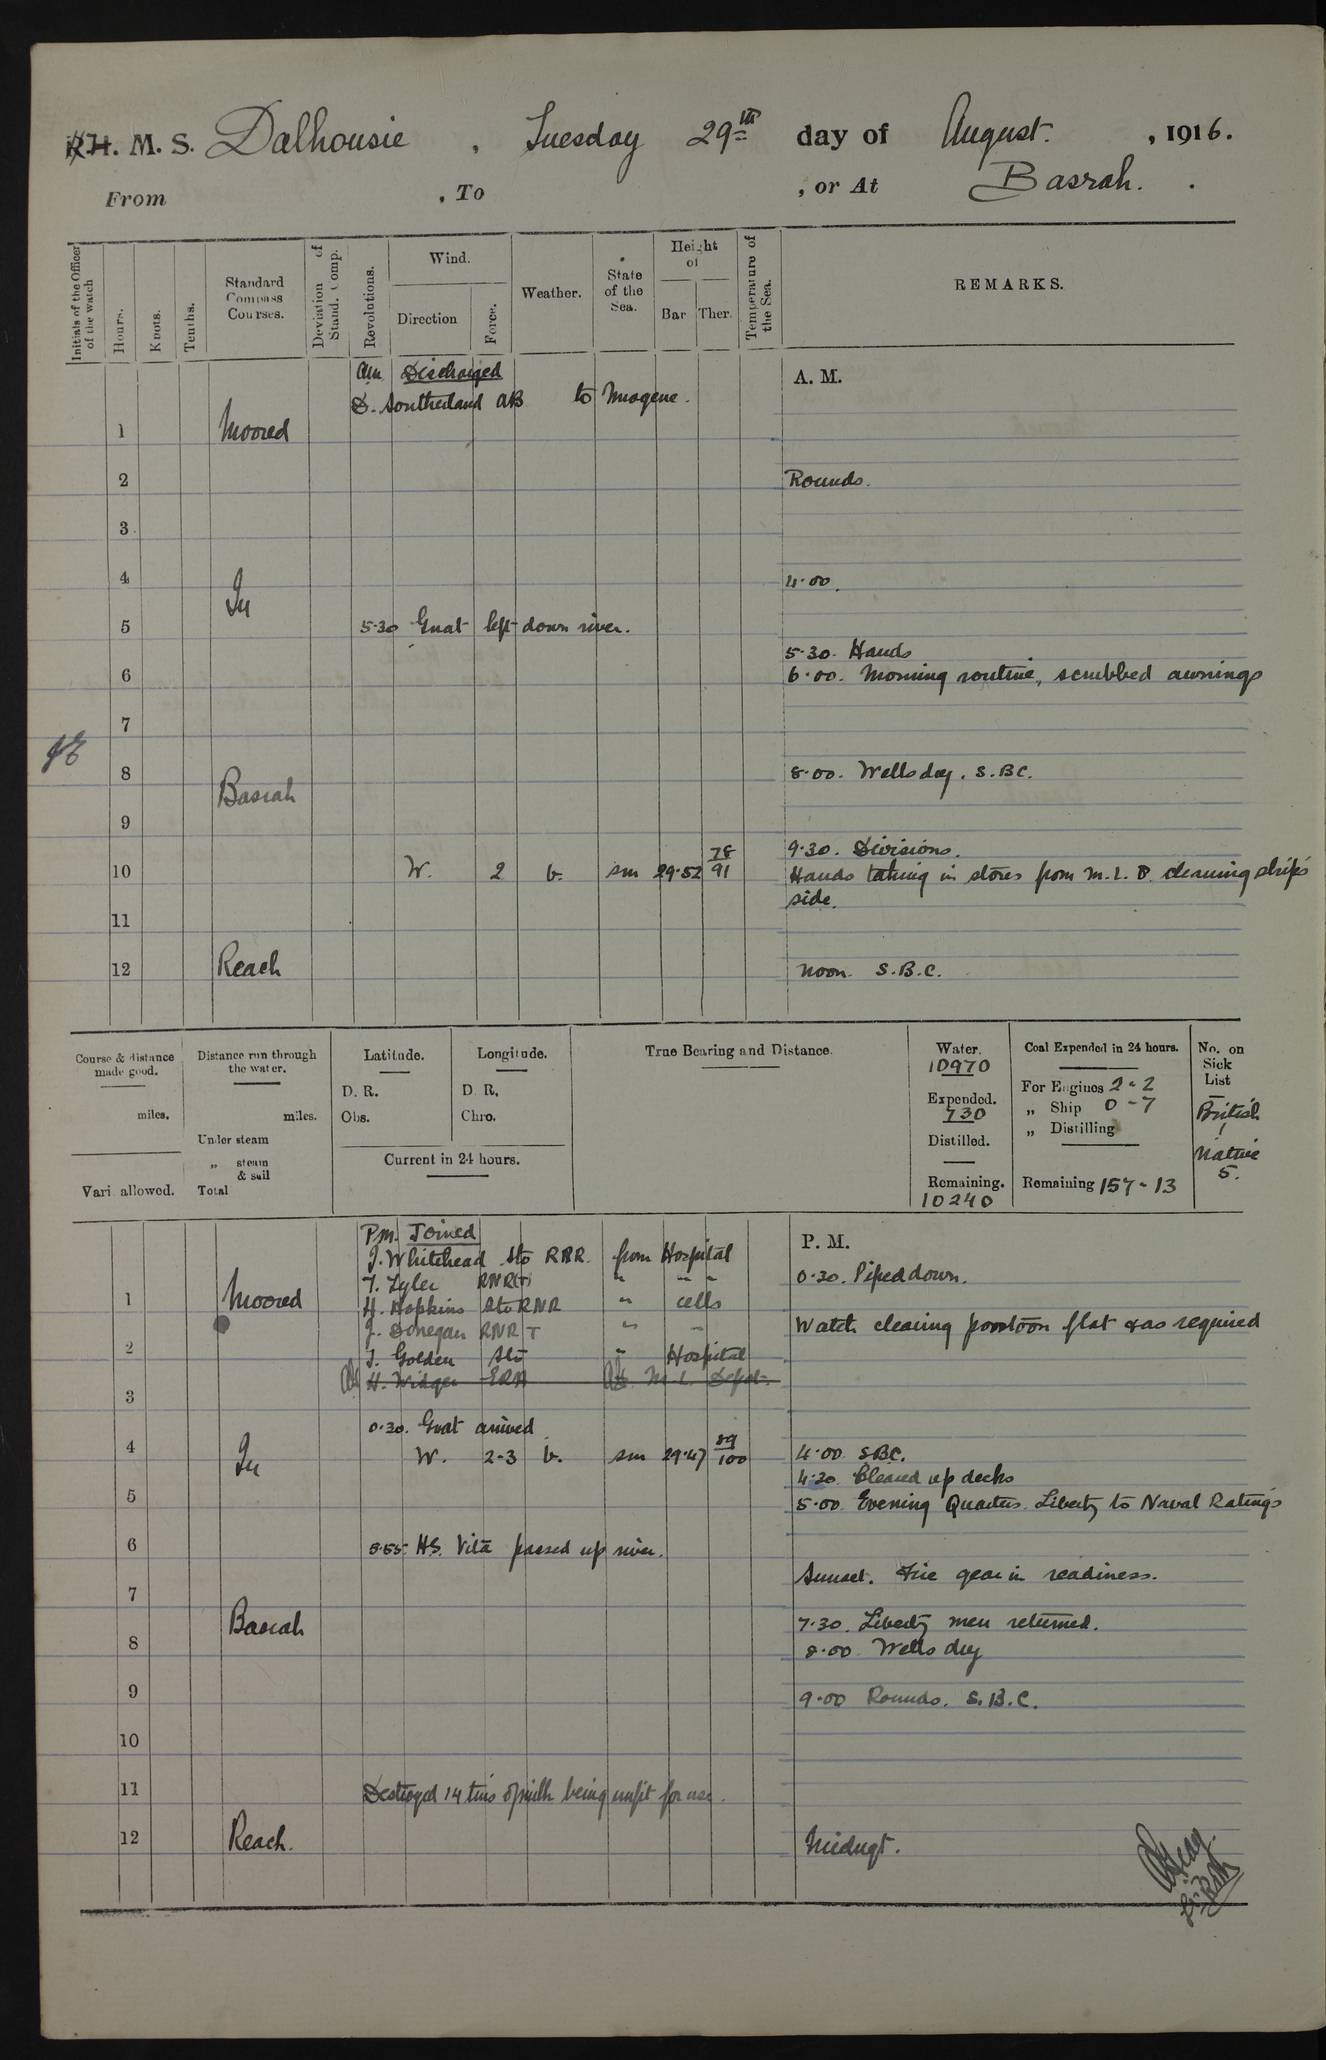 H. M. S. Dalhousie , Tuesday 29th day of August. , 1916.
From , To , or At Basrah. .
Initials of the Officer of the watch
Hours.
Knots.
Tenths.
Standard Compass Courses.
Deviation of Stand. Comp.
Revolutions.
Wind.
Direction
Force.
Weather.
State of the Sea.
Height of
Bar Ther.
Temperature of the Sea.
REMARKS.
am Discharged
A. M.
D. Southerland AB to Imogene.
1 Moored
2 Rounds.
3
4 4.00.
In
5 5.30 Gnat left down river.
5.30. Hands
6 6.00. Morning routine, scrubbed awnings
7
8 8.00. Wells dry. S.B.C.
Basrah
9
9.30. Divisions.
10 W. 2 b. sm 29.52 78/91 Hands taking in stores from M.L.D. cleaning ship's
side.
11
12 Reach Noon. S.B.C.
Course & distance made good.
miles.
Vari. allowed.
Distance run through the water.
miles.
Under steam
„ steam & sail
Total
Latitude.
D. R.
Obs.
Longitude.
D. R.
Chro.
Current in 24 hours.
True Bearing and Distance.
Water.
10970
Expended.
730
Distilled.
Remaining.
10240
Coal Expended in 24 hours.
For Engines 2-2
„ Ship 0-7
„ Distilling
Remaining 157-13
No. on Sick List
British
1
Native
5.
P.M. Joined
P. M.
J. Whitehead Sto RNR. from Hospital
0.30. Piped down.
T. Tyler RNR(T) " " "
1 Moored H. Hopkins Sto RNR " cells
J. Donegan RNR T " "
Watch cleaning pontoon flat & as required
2 J. Golden Sto " Hospital
H. Widger ERA M L Depot.
3
0.30. Gnat arrived.
4 In W. 2-3 b. sm 29.47 89/100 4.00 SBC.
4.30. Cleared up decks
5 5.00 Evening Quarters. Liberty to Naval Ratings
6 5.55 HS. Vita passed up river.
Sunset. Fire gear in readiness.
7
Basrah 7.30. Liberty men returned.
8 8.00 Wells dry
9 9.00 Rounds. S.B.C.
10
11 Destroyed 14 tins of milk being unfit for use.
12 Reach. Midngt.